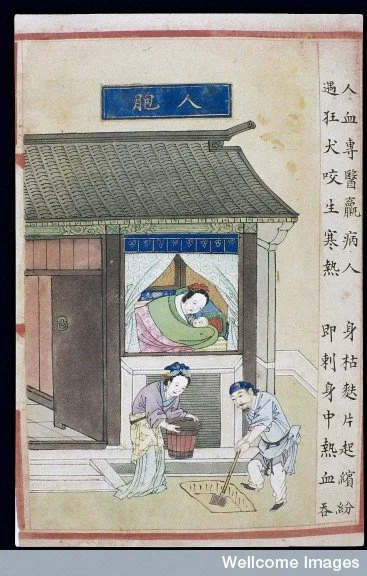 人胞
人血專醫羸病人 身枯麩片起繽紛
遇狂犬咬生寒熱 即刺身中熱血吞
Wellcome Images